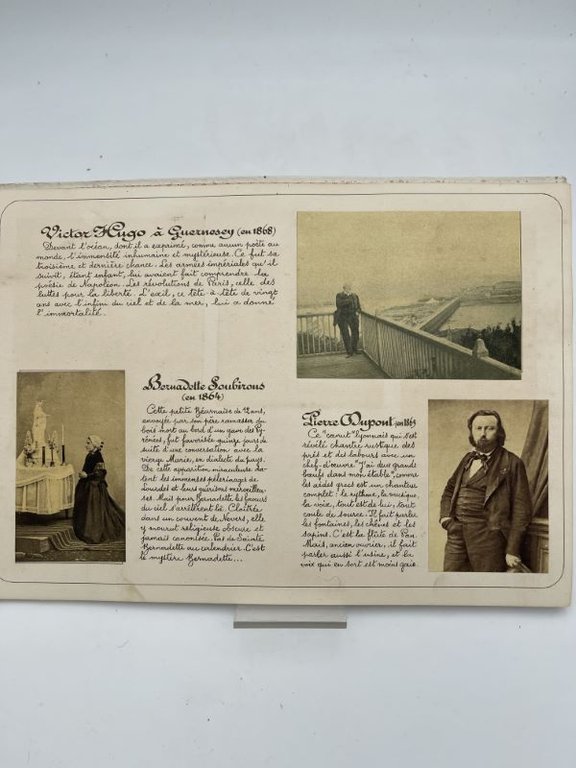 Victor Hugo à Guernesey (en 1868)
Devant l'océan, dont il a exprimé, comme aucun poète au
monde, l'immensité inhumaine et mystérieuse. Ce fut sa
troisième et dernière chance. Les armées impériales qu'il
suivit, étant enfant, lui avaient fait comprendre la
poésie de Napoléon. Les révolutions de Paris, celle des
luttes pour la liberté. L'exil, ce tête à tête de vingt
ans avec l'infini du ciel et de la mer, lui a donné
l'immortalité.
Bernadette Soubirous
(en 1864)
Cette petite Béarnaise de 12 ans,
envoyée par son père ramasser du
bois mort au bord d'un gave des Py-
rénées, fut favorisée quinze jours de
suite d'une conversation avec la
vierge Marie, en dialecte du pays.
De cette apparition miraculeuse da-
tent les immenses pèlerinages de
Lourdes et leurs guérisons merveilleu-
ses. Mais pour Bernadette les faveurs
du ciel s'arrêtèrent là. Cloîtrée
dans un couvent de Nevers, elle
y mourut religieuse obscure et
jamais canonisée. Pas de Sainte
Bernadette au calendrier. C'est
le mystère Bernadette...
Pierre Dupont (en
Ce "canut" lyonnais qui s'est
révélé chantre rustique des
prés et des labours avec un
chef-d'œuvre "J'ai deux grands
bœufs dans mon étable", comme
les aèdes grecs est un chanteur
complet: le rythme, la musique,
la voix, tout est de lui; tout
coule de source. Il fait parler
les fontaines, les chênes et les
sapins. C'est la flûte de Pan.
Mais, ancien ouvrier, il fait
parler aussi l'usine, et la
voix qui en sort est moins gaie.